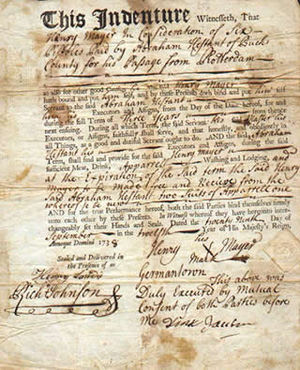 This Indenture Witnesseth, That
Henry Mayer In Consideration of Six
Pounds paid by Abraham Hestant of Bucks
County for his Passage from Rotterdam
as also for other good Causes, he the said Henry Mayer
bound and put him self, and by these Presents doth bind and put him self
Servant to the said Abraham Hestant
Executors and Assigns, from the Day of the Date hereof, for and
full Term of Three Years
next ensuing. During all which Term, the said Servant his
Executors, or Assigns, faithfully shall serve, and that honestly and obediently in
all Things, as a good and dutiful Servant ought to do. AND the said Abraham
Hestant his Executors and Assigns, during the
Term, shall find and provide for the said Henry Mayer
sufficient Meat, Drink, Apparel, Washing and Lodging, and
at the Expiration of the said term the said Henry
Mayer be made free and Receive
said Abraham Hestant two Suits of Apparell one
whereof is to be new
AND for the true Performance hereof, both the said Parties bind themselves firmly
unto each other by these Presents. In Witness whereof they have hereunto inter-
changeably set their Hands and Seals. Dated the
September in the twelfth Year of His Majesty's Reign,
Annoque Domini 1738
his
Sealed and Delivered Henry Mayer
in the Presence of us mark
Germantown
Rich Johnson This above was
Duly Executed by Mutual
Consent of both Parties before
Me